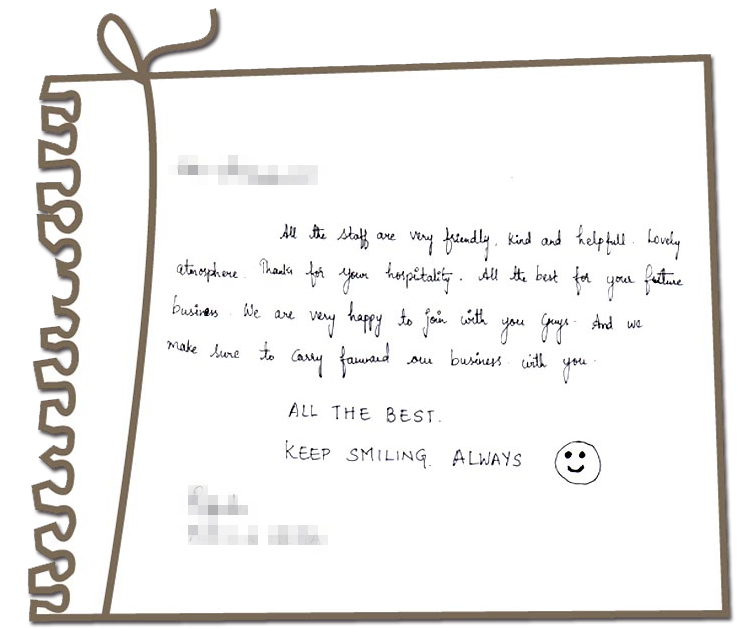 All the staff are very friendly, kind and helpfull. Lovely
atmosphere. Thanks for your hospitality. All the best for your future
business. We are very happy to join with you guys. And we
make sure to carry forward our business with you.
ALL THE BEST.
KEEP SMILING. ALWAYS